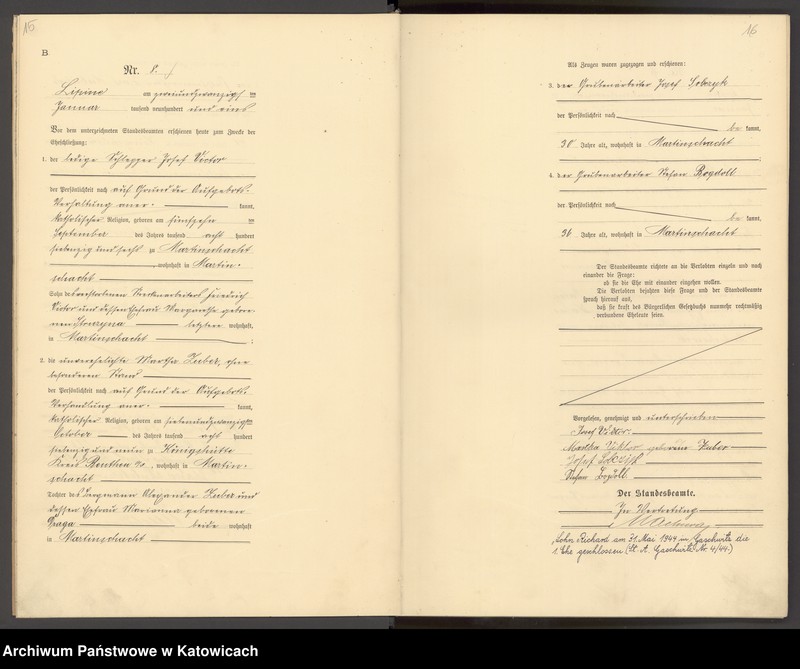 15
B
Nr. 8.
Lipine am zweiundzwanzigsten
Januar tausend neunhundert und eins
Vor dem unterzeichneten Standesbeamten erschienen heute zum Zwecke der
Eheschließung:
1. der ledige Schlepper Josef Victor
der Persönlichkeit nach auf Grund der Aufgebots-
Verhandlung aner- kannt,
katholischer Religion, geboren am fünfzehn ten
September des Jahres tausend acht hundert
siebenzig und sechs zu Martinschacht
, wohnhaft in Martin-
schacht
Sohn des verstorbenen Heinrich
Victor und dessen Ehefrau Margarethe gebore-
nen letztere wohnhaft
in Martinschacht ;
2. die unverehelichte Martha Zuber, ohne
besonderen Stand
der Persönlichkeit nach auf Grund der Aufgebots-
Verhandlung aner- kannt,
katholischer Religion, geboren am siebenundzwanzigsten
October des Jahres tausend acht hundert
siebenzig und neun zu Königshütte
Kreis Beuthen , wohnhaft in Martin-
schacht
Tochter des Bergmann Alexander Zuber und
dessen Ehefrau Marianna geborenen
beide wohnhaft
in Martinschacht
16
Als Zeugen waren zugezogen und erschienen:
3. der Grubenarbeiter Josef Sobczyk
der Persönlichkeit nach
be kannt,
30 Jahre alt, wohnhaft in Martinschacht
;
4. der Grubenarbeiter Stefan Rogdoll
der Persönlichkeit nach
be kannt,
36 Jahre alt, wohnhaft in Martinschacht
Der Standesbeamte richtete an die Verlobten einzeln und nach
einander die Frage:
ob sie die Ehe mit einander eingehen wollen.
Die Verlobten bejahten diese Frage und der Standesbeamte
sprach hierauf aus,
daß sie kraft des Bürgerlichen Gesetzbuchs nunmehr rechtmäßig
verbundene Eheleute seien.
Vorgelesen, genehmigt und unterschrieben
Josef Viktor
Martha Viktor geborene Zuber
Josef Sobczyk
Stefan
Der Standesbeamte.
In Vertretung
Sohn Richard am 31. Mai 1944 in Gaschwitz die
1. Ehe geschlossen (St. A. Gaschwitz Nr. 4/44.)
Archiwum Państwowe w Katowicach